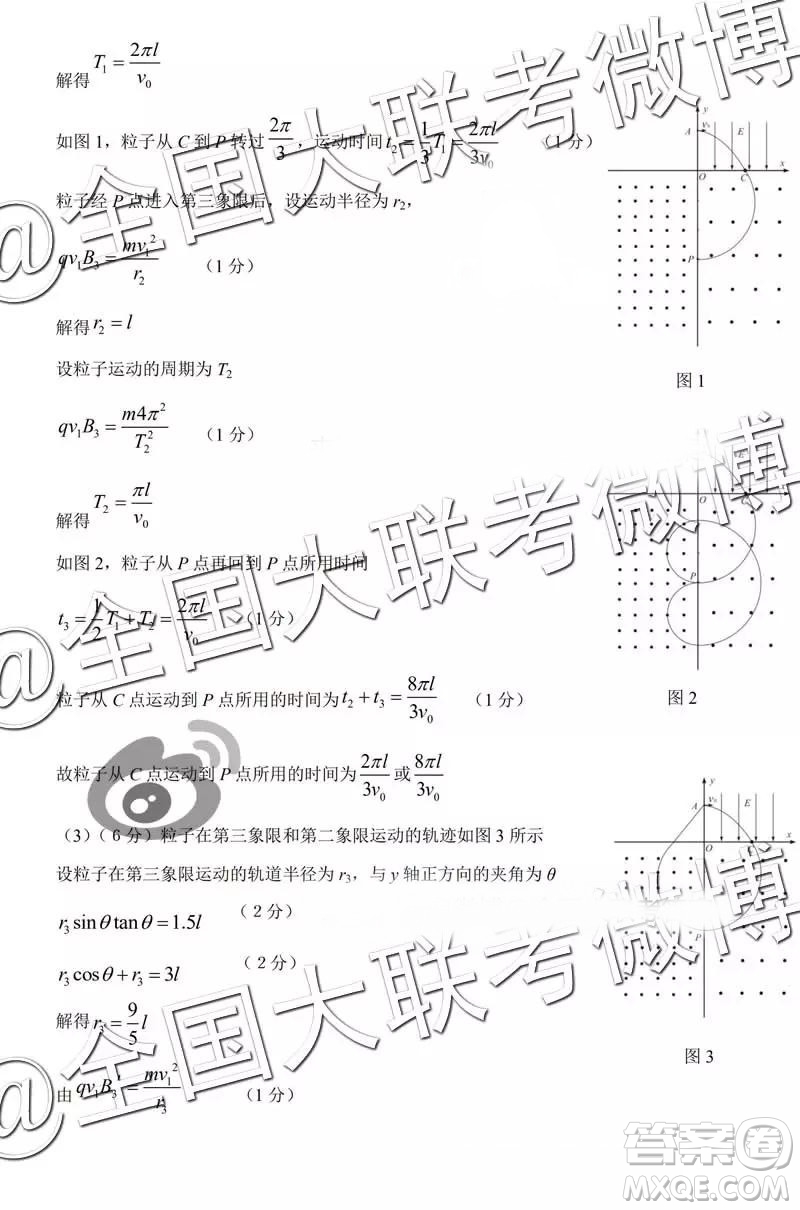 解得 T₁ = 2πl/v₀
如图 1，粒子从 C 到 P 转过 2π/3，运动时间 t₂ = 1/3 T₁ = 2πl/3v₀ （1 分）
粒子经 P 点进入第三象限后，设运动半径为 r₂，
qv₁B₃ = mv₁²/r₂ （1 分）
解得 r₂ = l
设粒子运动的周期为 T₂
qv₁B₃ = m4π²/T₂² （1 分）
解得 T₂ = πl/v₀
如图 2，粒子从 P 点再回到 P 点所用时间
t₃ = 1/2 T₁ + T₂ = 2πl/v₀ （1 分）
粒子从 C 点运动到 P 点所用的时间为 t₂ + t₃ = 8πl/3v₀ （1 分）
故粒子从 C 点运动到 P 点所用的时间为 2πl/3v₀ 或 8πl/3v₀
（3）（6 分）粒子在第三象限和第二象限运动的轨迹如图 3 所示
设粒子在第三象限运动的轨道半径为 r₃，与 y 轴正方向的夹角为 θ
r₃ sinθ tanθ = 1.5l （2 分）
r₃ cosθ + r₃ = 3l （2 分）
解得 r₃ = 9/5 l
由 qv₁B₃' = mv₁²/r₃ （1 分）
y
A v₀ E
O C x
P
图 1
E
O C x
P
图 2
y
A v₀ E
O x
P
图 3
@全国大联考微博
@全国大联考微博
@全国大联考微博
答案卷
MXQE.COM